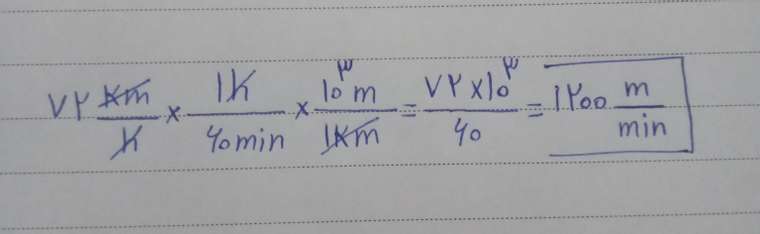 ۷۲ km/h × 1h/۶۰min × ۱۰^۳ m/1km = ۷۲×۱۰^۳/۶۰ = ۱۲۰۰ m/min